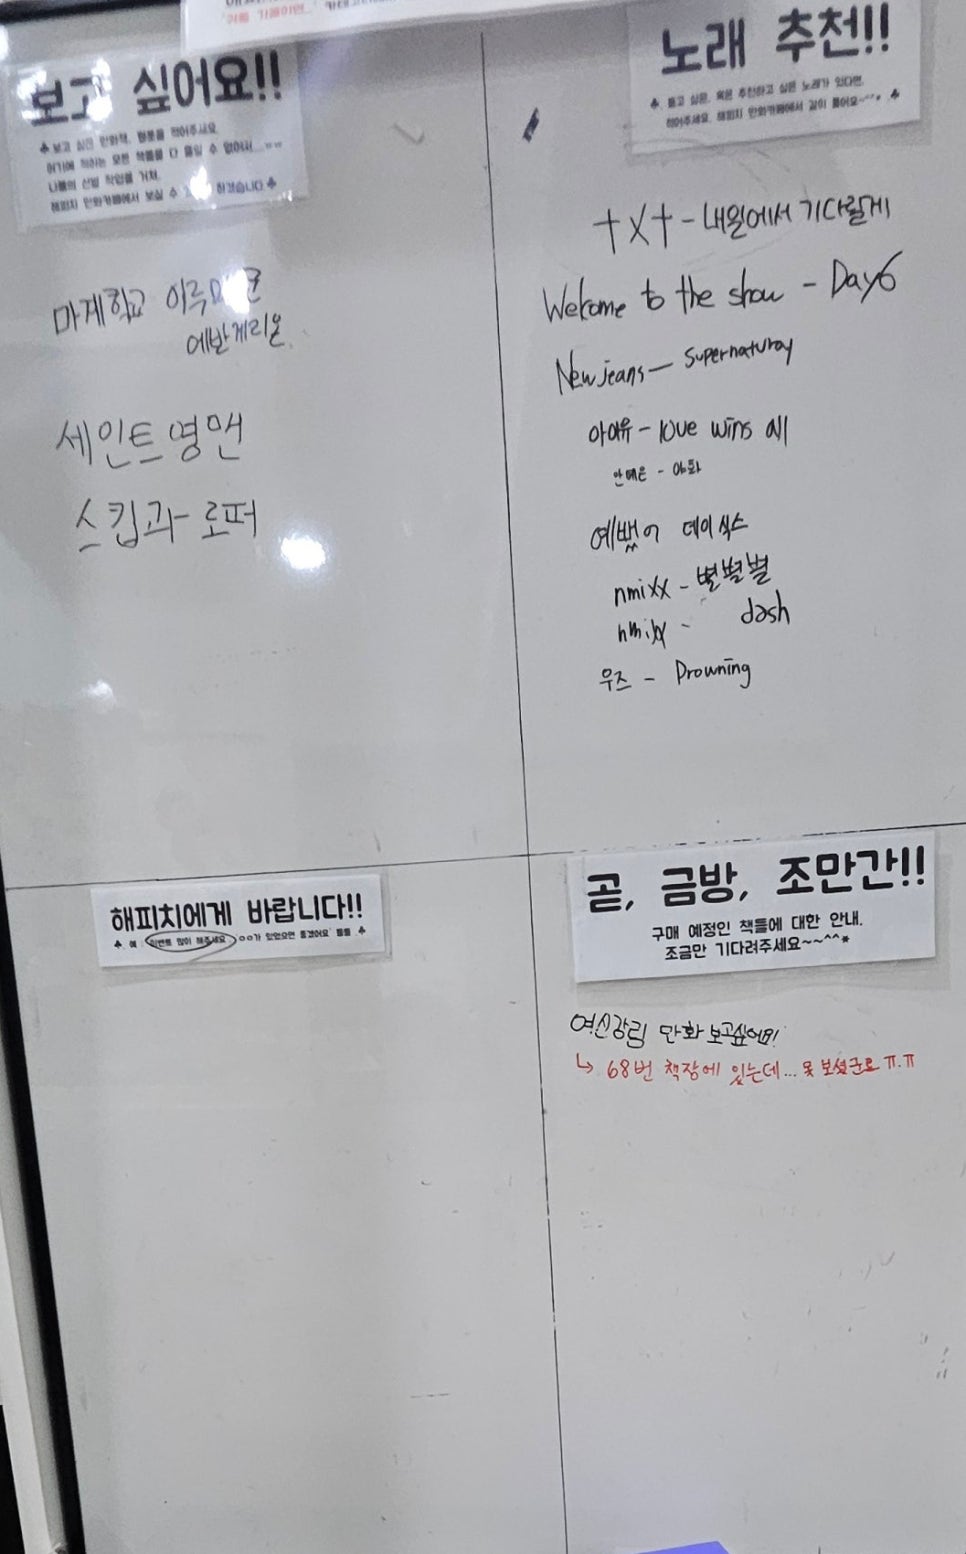 보고 싶어요!!
♣ 보고 싶은 만화책, 웹툰을 적어주세요.
여기에 적히는 모든 책들을 다 들일 수 없어서....ㅠㅠ
나름의 선별 작업을 거쳐,
해피치 만화카페에서 보실 수 하겠습니다 ♣
마계학교 이루마군
에반게리온
세인트영맨
스킵과 로퍼
노래 추천!!
♣ 듣고 싶은, 혹은 추천하고 싶은 노래가 있다면,
적어주세요. 해피치 만화카페에서 같이 들어요~^^* ♣
txt - 내일에서 기다릴게
Welcome to the show - Day6
Newjeans - supernaturay
아이유 - love wins all
안예은 - 야화
예뻤어 데이식스
nmixx - 별별별
nmixx - dash
우즈 - Drowning
해피치에게 바랍니다!!
♣ 예 이벤트 많이 해주세요 ㅇㅇ가 있었으면 좋겠어요 등등 ♣
곧, 금방, 조만간!!
구매 예정인 책들에 대한 안내.
조금만 기다려주세요~~^^*
여신강림 만화 보고싶어요!
↳ 68번 책장에 있는데... 못 보셨군요 ㅠ.ㅠ